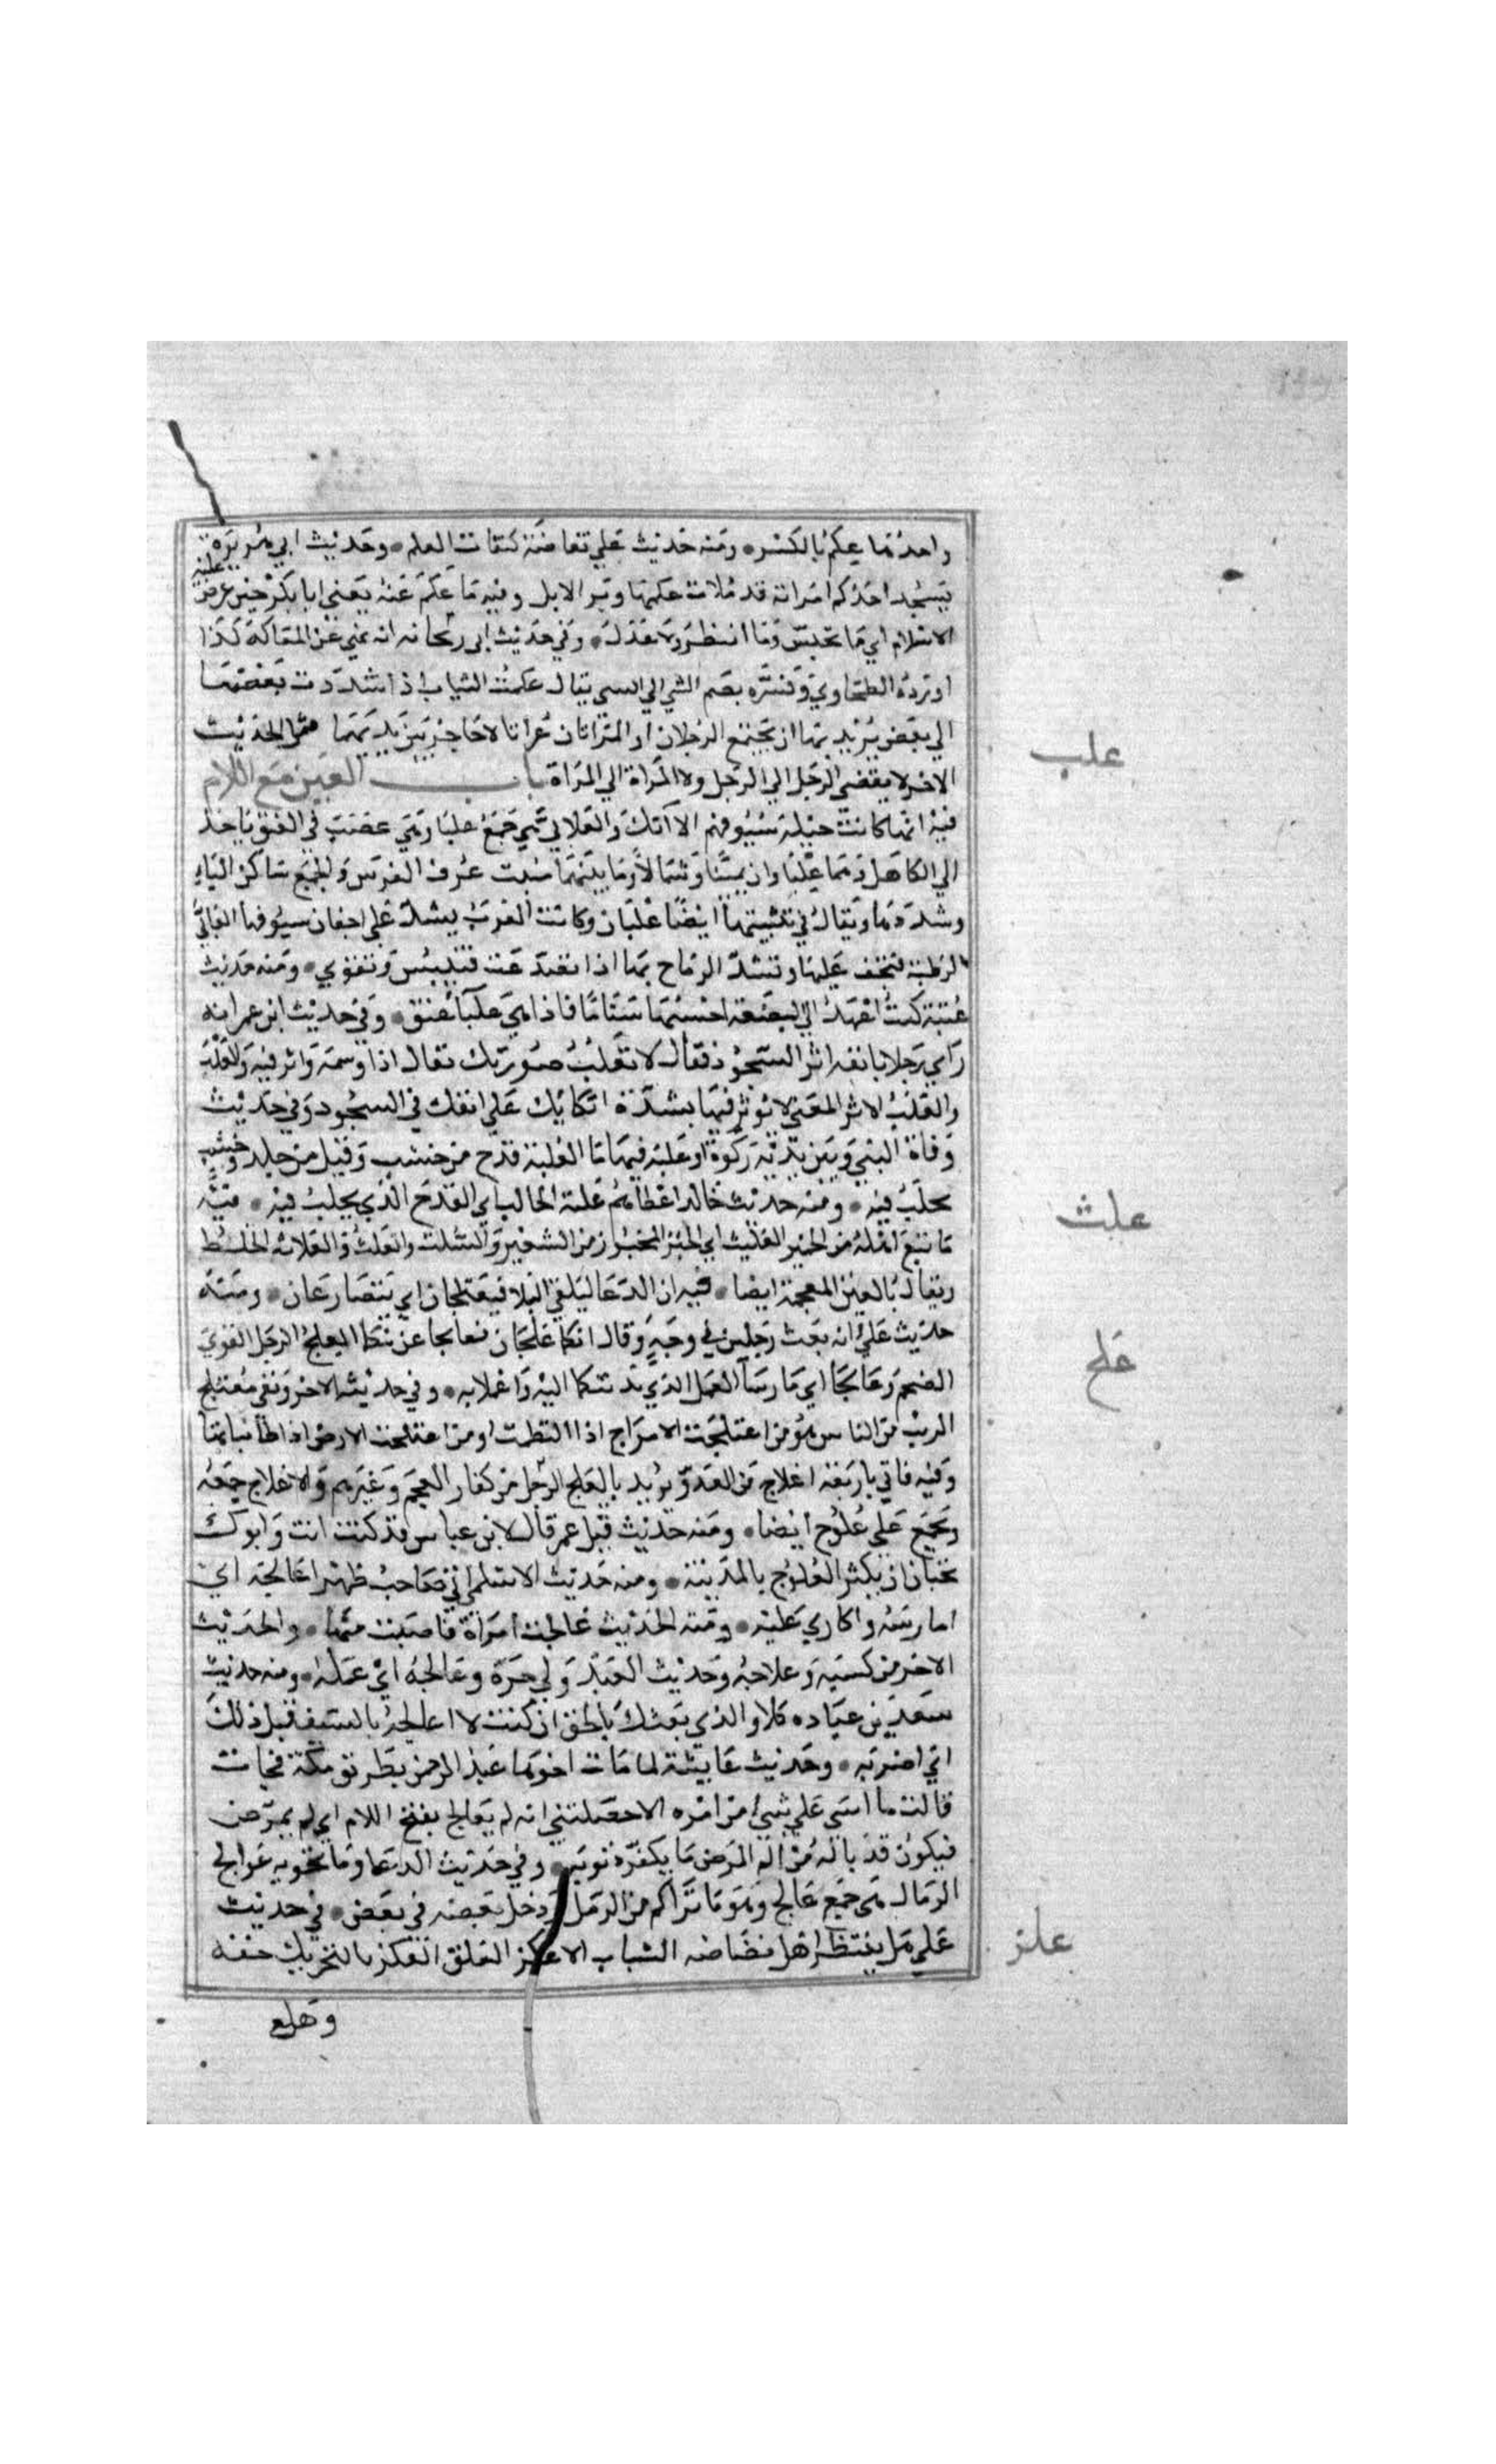 واحدُهما عِكم بالكسر ومنه حديث علي نفاضة كنفاضة العكم وحديث ابي هُريرَة
احدكم امراته قد ملات عكمها وبر الابل وفيه ما عكم عَنهُ يَعني ابا بَكر حين عرض عليه
الاسلام اي ما تحبّس وَما انتظر ولا عَدَل وَفي حَديث ابي ريحانه انه نهي عَن المعَاكمَة كَذا
اورَدهُ الطحَاوي وَفسَّره بضم الشي الي الشي يقال عكمتُ الثياب اذا شدَدت بَعضهَا
الي بعَض يُريد بهَا ان يَجتمع الرَجُلان او المَراتان عُراتا لا حَاجز بَين بدَنيهمَا مثل الحَديث
الاخر لا يفضي الرَجل الي الرَجل ولا المَراة الي المَراة باب العَين مَع اللام
فيه انما كانت حليَة سُيُوفهم الآنك وَالعَلابي هيَ جَمعُ علبَا وَهيَ عَصَبٌ في العنق ياخذ
الي الكاهل وَهمَا علبَا وان يمينًا وَشمَالاً وَما بينَهُمَا منبت عُرف الفَرَس وَالجمَع سَاكن اليَاءِ
وشدَدها وَيقالُ في تثنيتها ايضًا علبَان وكانت العَرَبُ يشدّ عَلي اجفان سيُوفها العَلابيَّ
الرَطبَة فتجف عَليهَا وتشدّ الرمَاح بهَا اذا تصَدعَت فتيبَس وَتقوي ومَنه حَديث
عُتبَة كنتُ اعمَدُ الي البَضعَة احسبُهَا سَنَامًا فاذا هيَ علبَآ عُنق وَفي حَديث ابن عمر انه
رَاي رَجلا بانفه اثر السجُود فقال لا تعلُبُ صُورَتك يقال اذا وسمَه وَاثر فيه
والعَلبُ الاثر المعَني لا تؤثر فيهَا بشدَّة اتكايك عَلي انفك في السجُود وَفي حَديث
وَفاة النبي وَبَين يَدَيْهِ رَكوَة او عُلبَة فيهَا مَا العُلبَة قدَح من خشَب وَقيل من جلد وخشب
يحلَبُ فيه ومنه حديث خالد اعطاهُم عُلبَة الحالب اي القدَح الذي يحلبُ فيه فيَه
مَا شبَع اهلهُ من الخبز العَليث اي الخبز المخبوز من الشعير وَالسُلت وَالعلثُ وَالعلاثه الخلط
وَيقالُ بالعين المعجمة ايضا فيه ان الدعَا ليَلقي البَلا فيَعتَلجَان اي يَتصَارعَان ومَنه
حديث عَليّ انه بَعث رَجلين في وجهٍ وَقال انكما عِلجَان فعَالجا عن دينكما العِلجُ الرَجل القوي
الضخم وَعَالجَا اي مَارسَا العَمل الذي نَدبتكما اليه وَاعملا به وفي حديثه الاخر وَنفي مُعتلج
الريب من الناس هُوَ من اعتلجَت الامواج اذا التطمت او من اعتلجت الارض اذا طال نباتها
وَفيه فاتي باربَعة اعلاج من العَدوّ يُريد بالعِلج الرَجل من كفار العجَم وَغيرَهم وَالاعلاج جَمعُه
ويُجمَع عَلي عُلوُج ايضا ومنه حَديث قتل عمر قال لابن عباس قد كنت انت وَابوك
تحبَان ان يكثر العُلوُج بالمدَينة ومنه حَديث الاسلمي اني صَاحبُ ظهر اعَالجه اي
امارسَهُ واكاري عَليه ومَنه الحَديث عَالجت امرَاة فاصَبت منهَا والحَديث
الاخر من كسبَه وعلاجهُ وحَديث العَبد وَلي حَرّه وعلاجَهُ ايْ عَملهُ ومنه حديث
سَعد بن عبَاده كلا والذي بَعثكَ بالحق ان كنت لا اعالجهُ بالسيف قبل ذلك
اي اضربَه وحَديث عَايشة لما مَات اخوهَا عَبد الرحمن بطَريق مكة فجات
قالت ما اسَي عَلي شيء من امره الا خصَلتين انه لم يُعَالَج بفتح اللام اي لم يمرّض
فيكوُن قد نالهُ من اَلم المَرَض مَا يكفّر ذنوبَه وفي حَديث الدعا وَمَا تحويه عَوالج
الرمَال هيَ جمَع عَالج وَهوَ مَا تَراكم من الرَمل وَدخل بَعضه في بَعض في حديث
عَلي هَل ينتظر اهل بضَاضَه الشباب الا عَلز القلق العَلز بالتحريك خفه
وَهلع
علب
علث
عَلج
علز